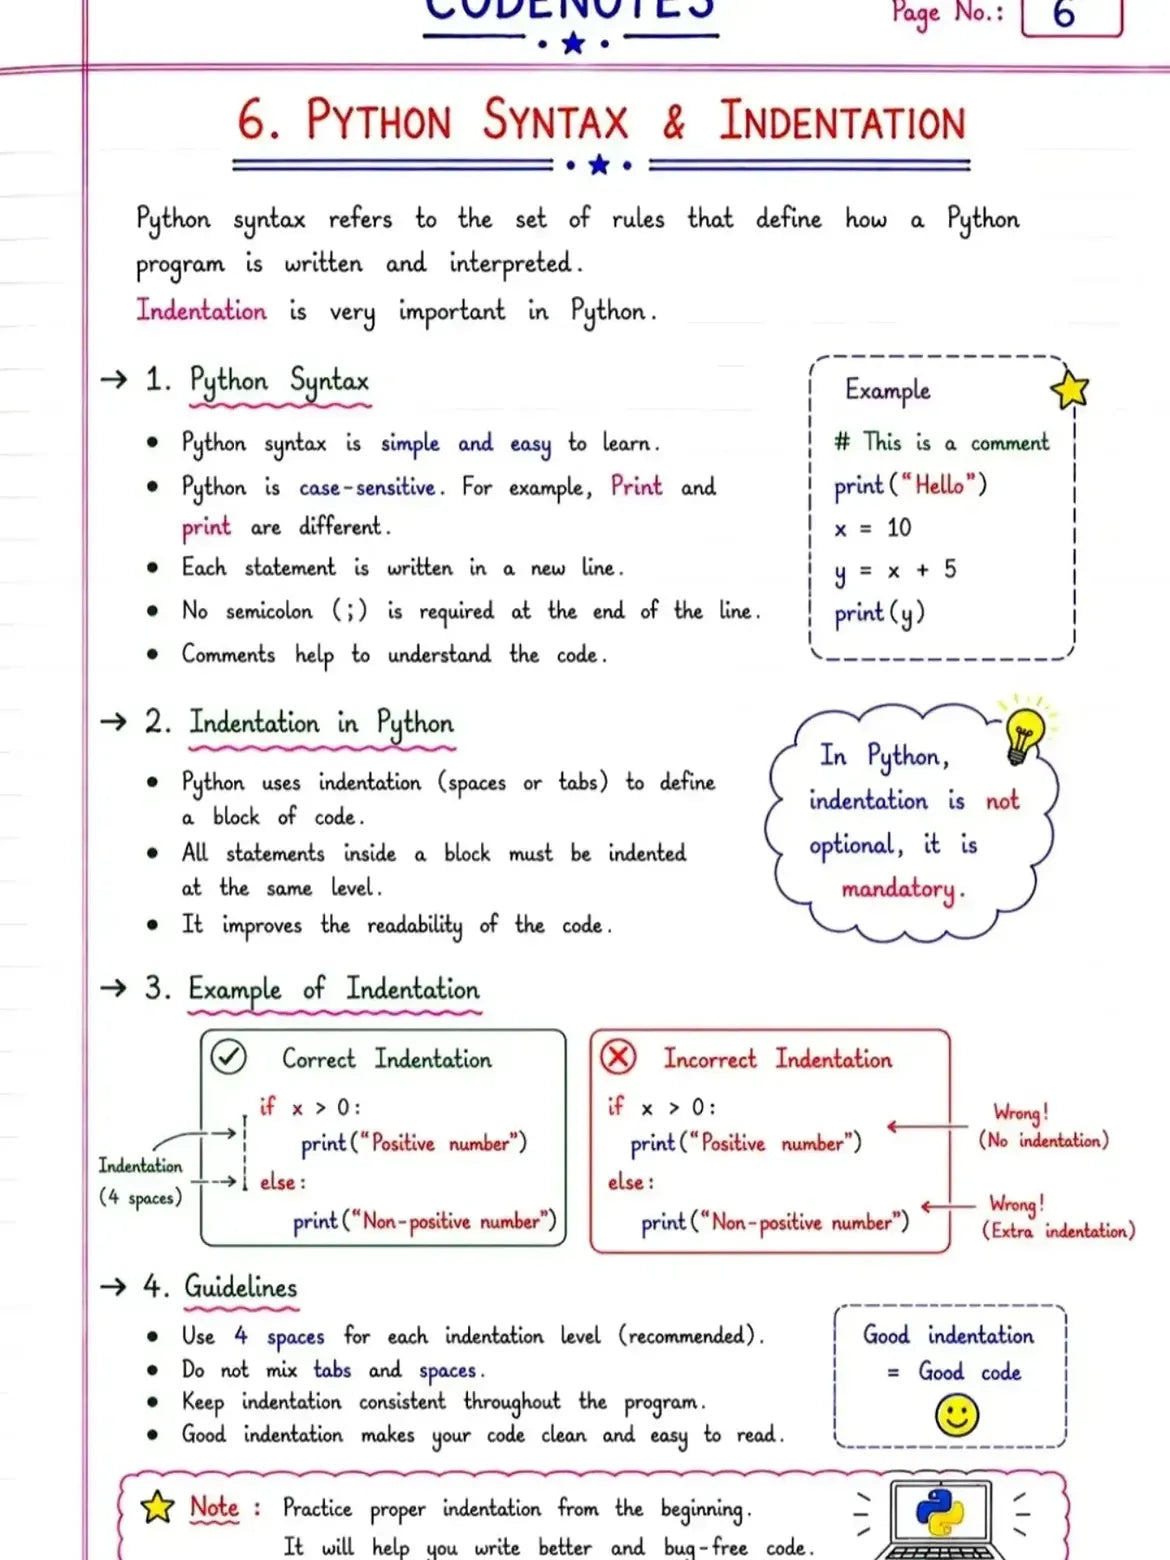 CODENOTES
Page No.: 6
6. PYTHON SYNTAX & INDENTATION
Python syntax refers to the set of rules that define how a Python
program is written and interpreted.
Indentation is very important in Python.
→ 1. Python Syntax
• Python syntax is simple and easy to learn.
• Python is case-sensitive. For example, Print and
print are different.
• Each statement is written in a new line.
• No semicolon (;) is required at the end of the line.
• Comments help to understand the code.
Example
# This is a comment
print("Hello")
x = 10
y = x + 5
print(y)
→ 2. Indentation in Python
• Python uses indentation (spaces or tabs) to define
a block of code.
• All statements inside a block must be indented
at the same level.
• It improves the readability of the code.
In Python,
indentation is not
optional, it is
mandatory.
→ 3. Example of Indentation
Correct Indentation
if x > 0:
print("Positive number")
else:
print("Non-positive number")
Indentation
(4 spaces)
Incorrect Indentation
if x > 0:
print("Positive number")
else:
print("Non-positive number")
Wrong!
(No indentation)
Wrong!
(Extra indentation)
→ 4. Guidelines
• Use 4 spaces for each indentation level (recommended).
• Do not mix tabs and spaces.
• Keep indentation consistent throughout the program.
• Good indentation makes your code clean and easy to read.
Good indentation
= Good code
Note : Practice proper indentation from the beginning.
It will help you write better and bug-free code.